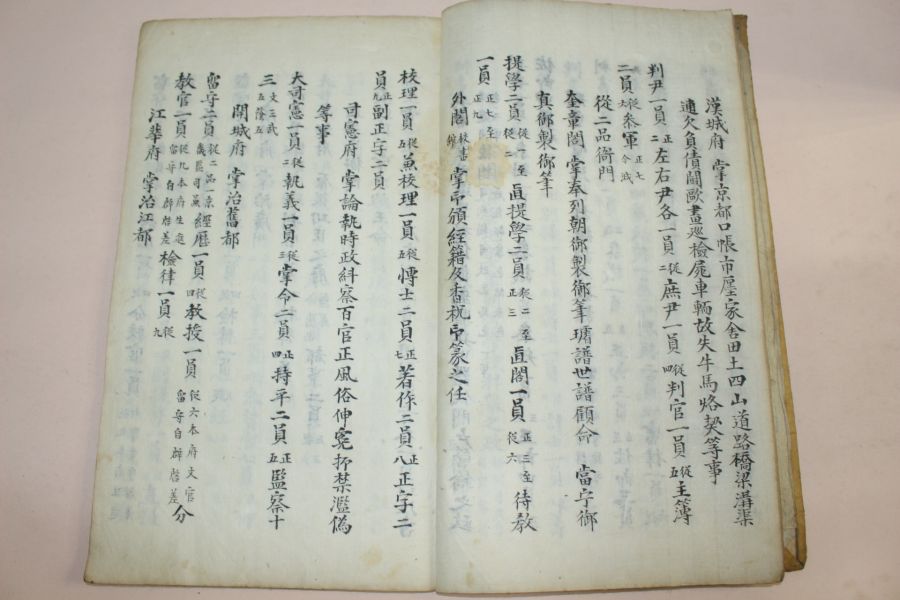 漢城府 掌京都口帳市廛家舍田土四山道路橋梁溝渠
逋欠負債鬪毆晝巡檢屍車輛故失牛馬烙契等事
判尹一員正二左右尹各一員從二庶尹一員從四判官一員從五主簿
二員從六叅軍正七今減
從二品衙門
奎章閣 掌奉列朝御製御筆璿譜世譜顧命 當宁御
真御製御筆
提學二員從一至從二直提學二員從二至正三直閣一員正三至從六待教
一員正七至正九
外閣校書館 掌印頒經籍及香祝印篆之任
校理一員從五兼校理一員從五愽士二員正七著作二員正八正字二
員正九副正字二員
司憲府 掌論執時政糾察百官正風俗伸冤抑禁濫偽
等事
大司憲一員從二執義一員從三掌令二員正四持平二員正五監察十
三文三武五蔭五
開城府 掌治舊都
畱守二員從二品一京畿監司兼經歷一員從四教授一員從六本府文官畱守自辟啓差分
教官一員從九本府生進畱守自辟啓差檢律一員從九
江華府 掌治江都